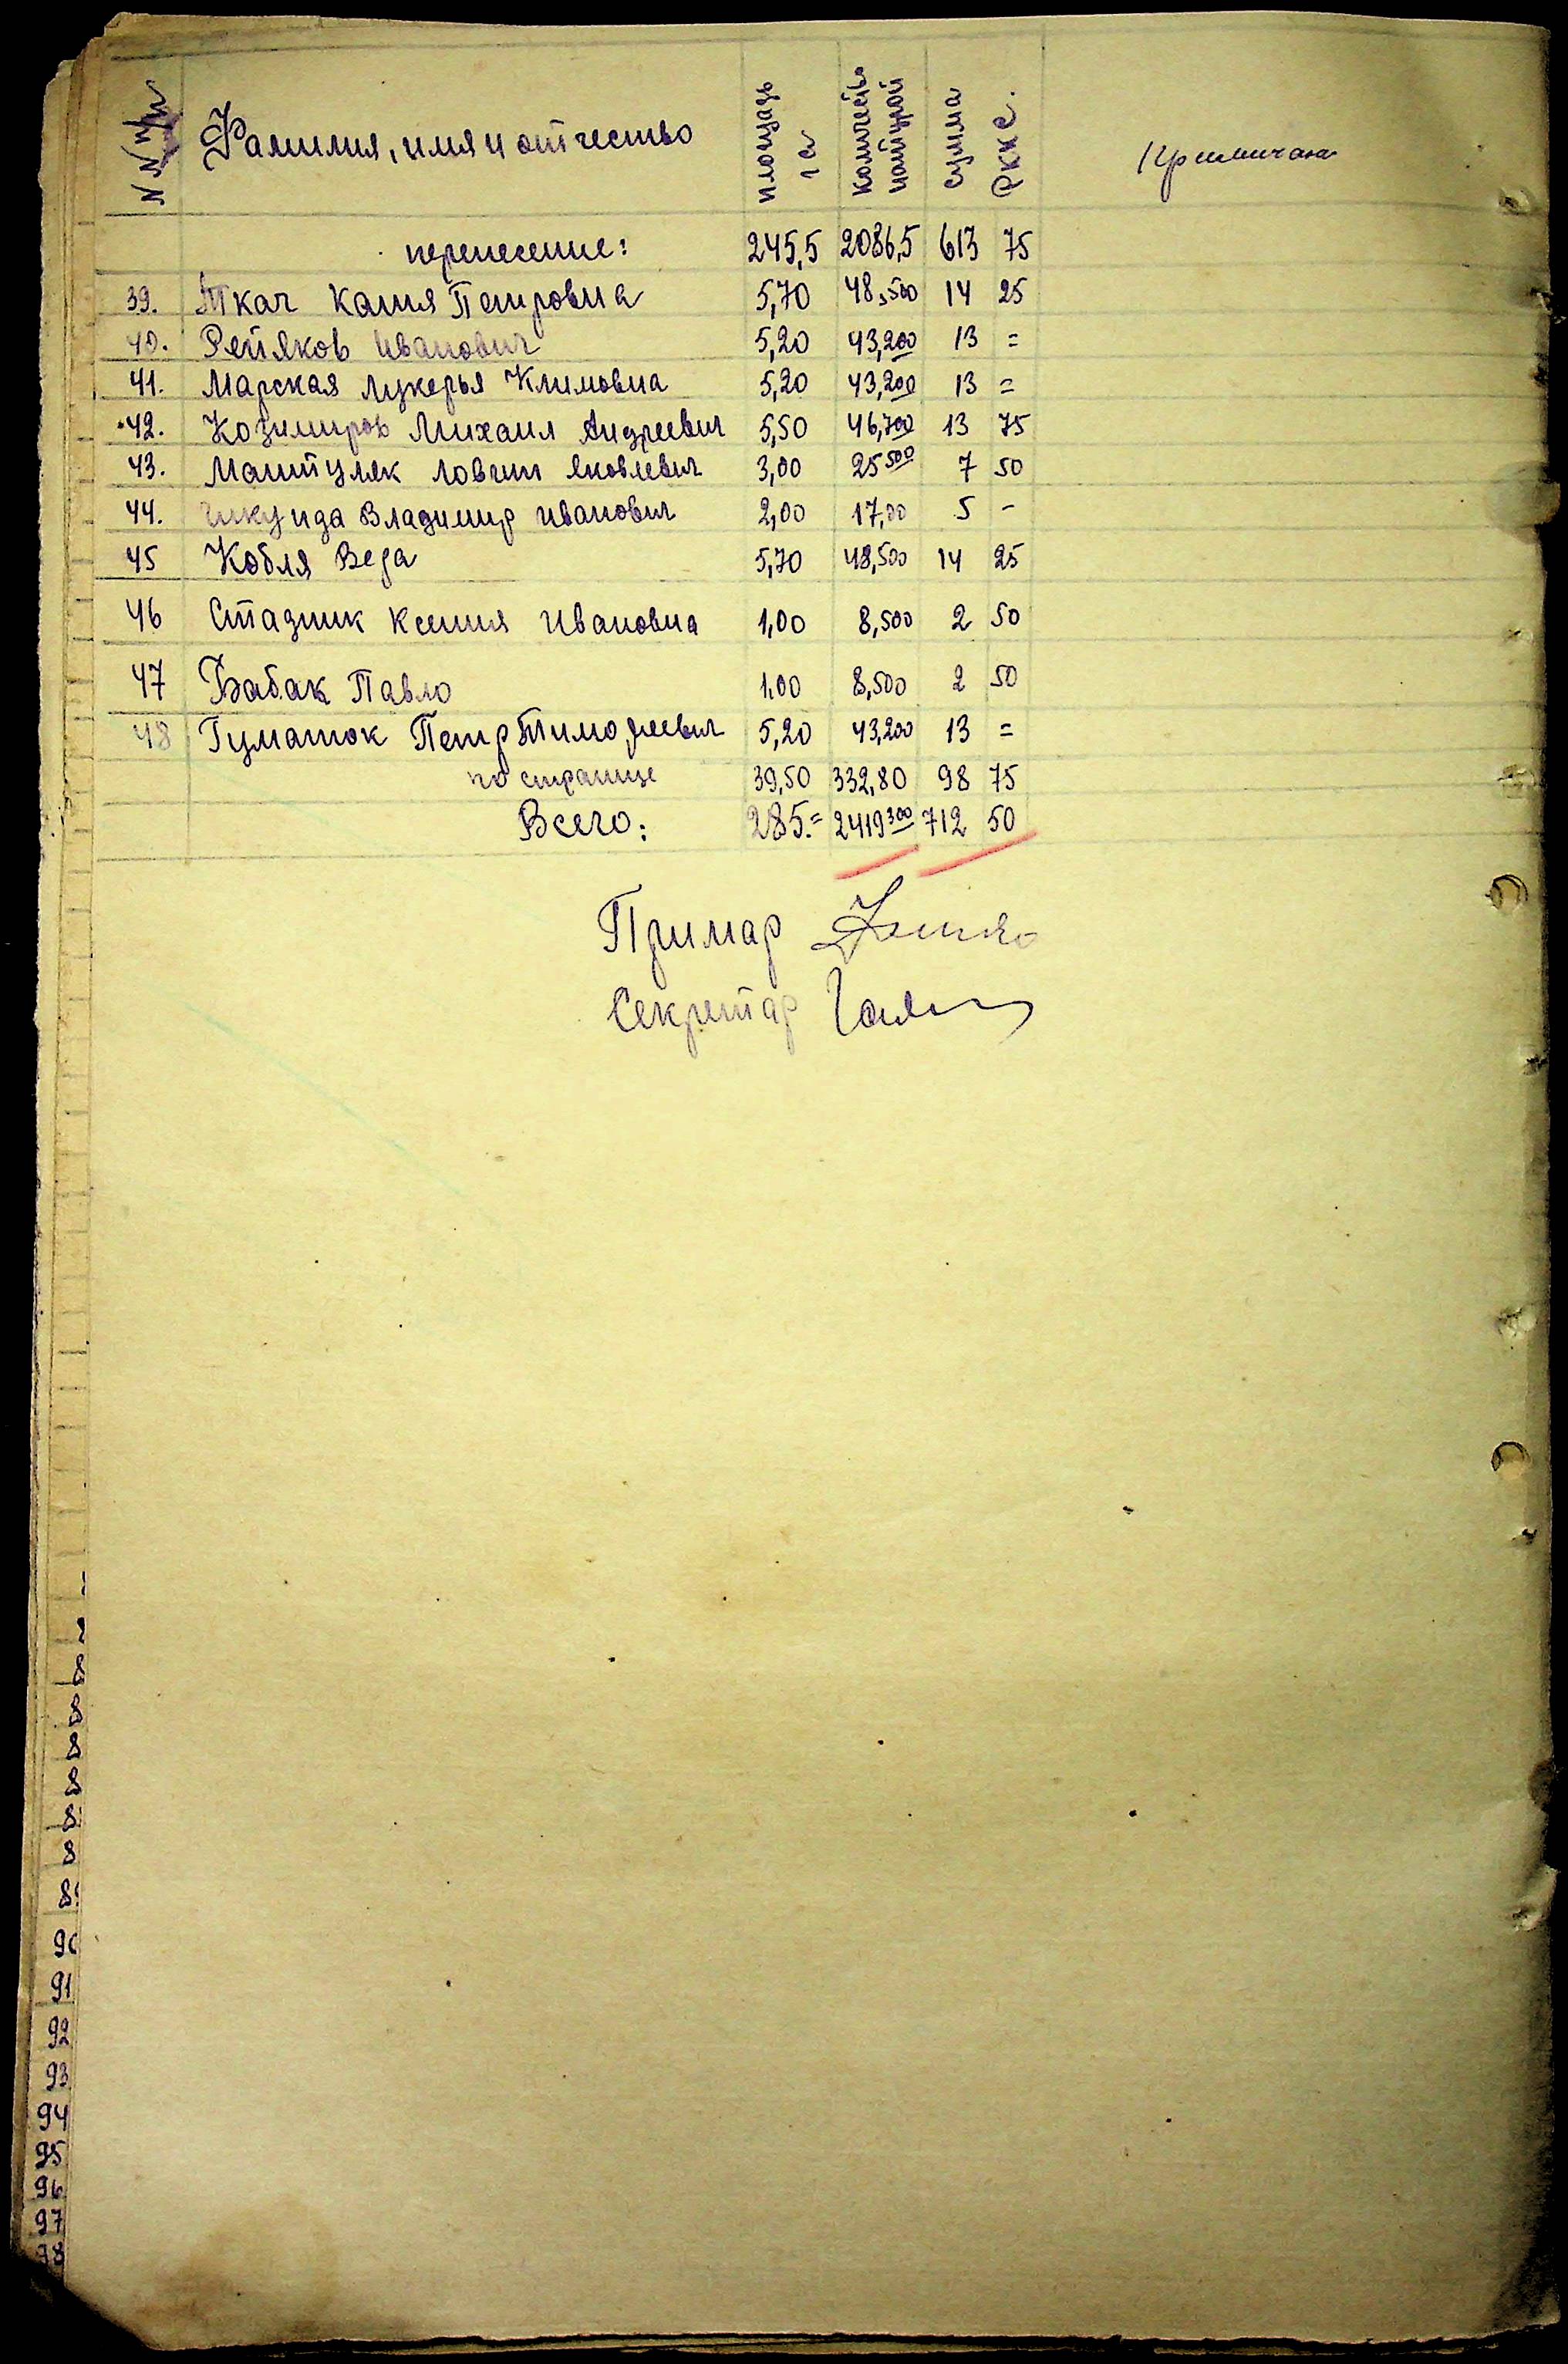 N N п/п Фамилия, имя и отчество площадь га количество натурой сумма Ркке. Примичан
перенесение: 245,5 2086,5 613 75
39. Ткач Катия Петровна 5,70 48,500 14 25
40. Рейяков Иванович 5,20 43,200 13 =
41. Марская Лукерья Климовна 5,20 43,200 13 =
42. Козимиров Михаил Андреевич 5,50 46,700 13 75
43. Яковлевич 3,00 25 500 7 50
44. Владимир Иванович 2,00 17,00 5 -
45 Кобля Вера 5,70 48,500 14 25
46 Стадник Ксения Ивановна 1,00 8,500 2 50
47 Бабак Павло 1,00 8,500 2 50
48 Гуматюк Петр Тимофеевич 5,20 43,200 13 =
по странице 39,50 332,80 98 75
Всего: 285.= 2419 300 712 50
Примар
Секретар
8
8
8
8
8
8
8
90
91
92
93
94
95
96
97
98